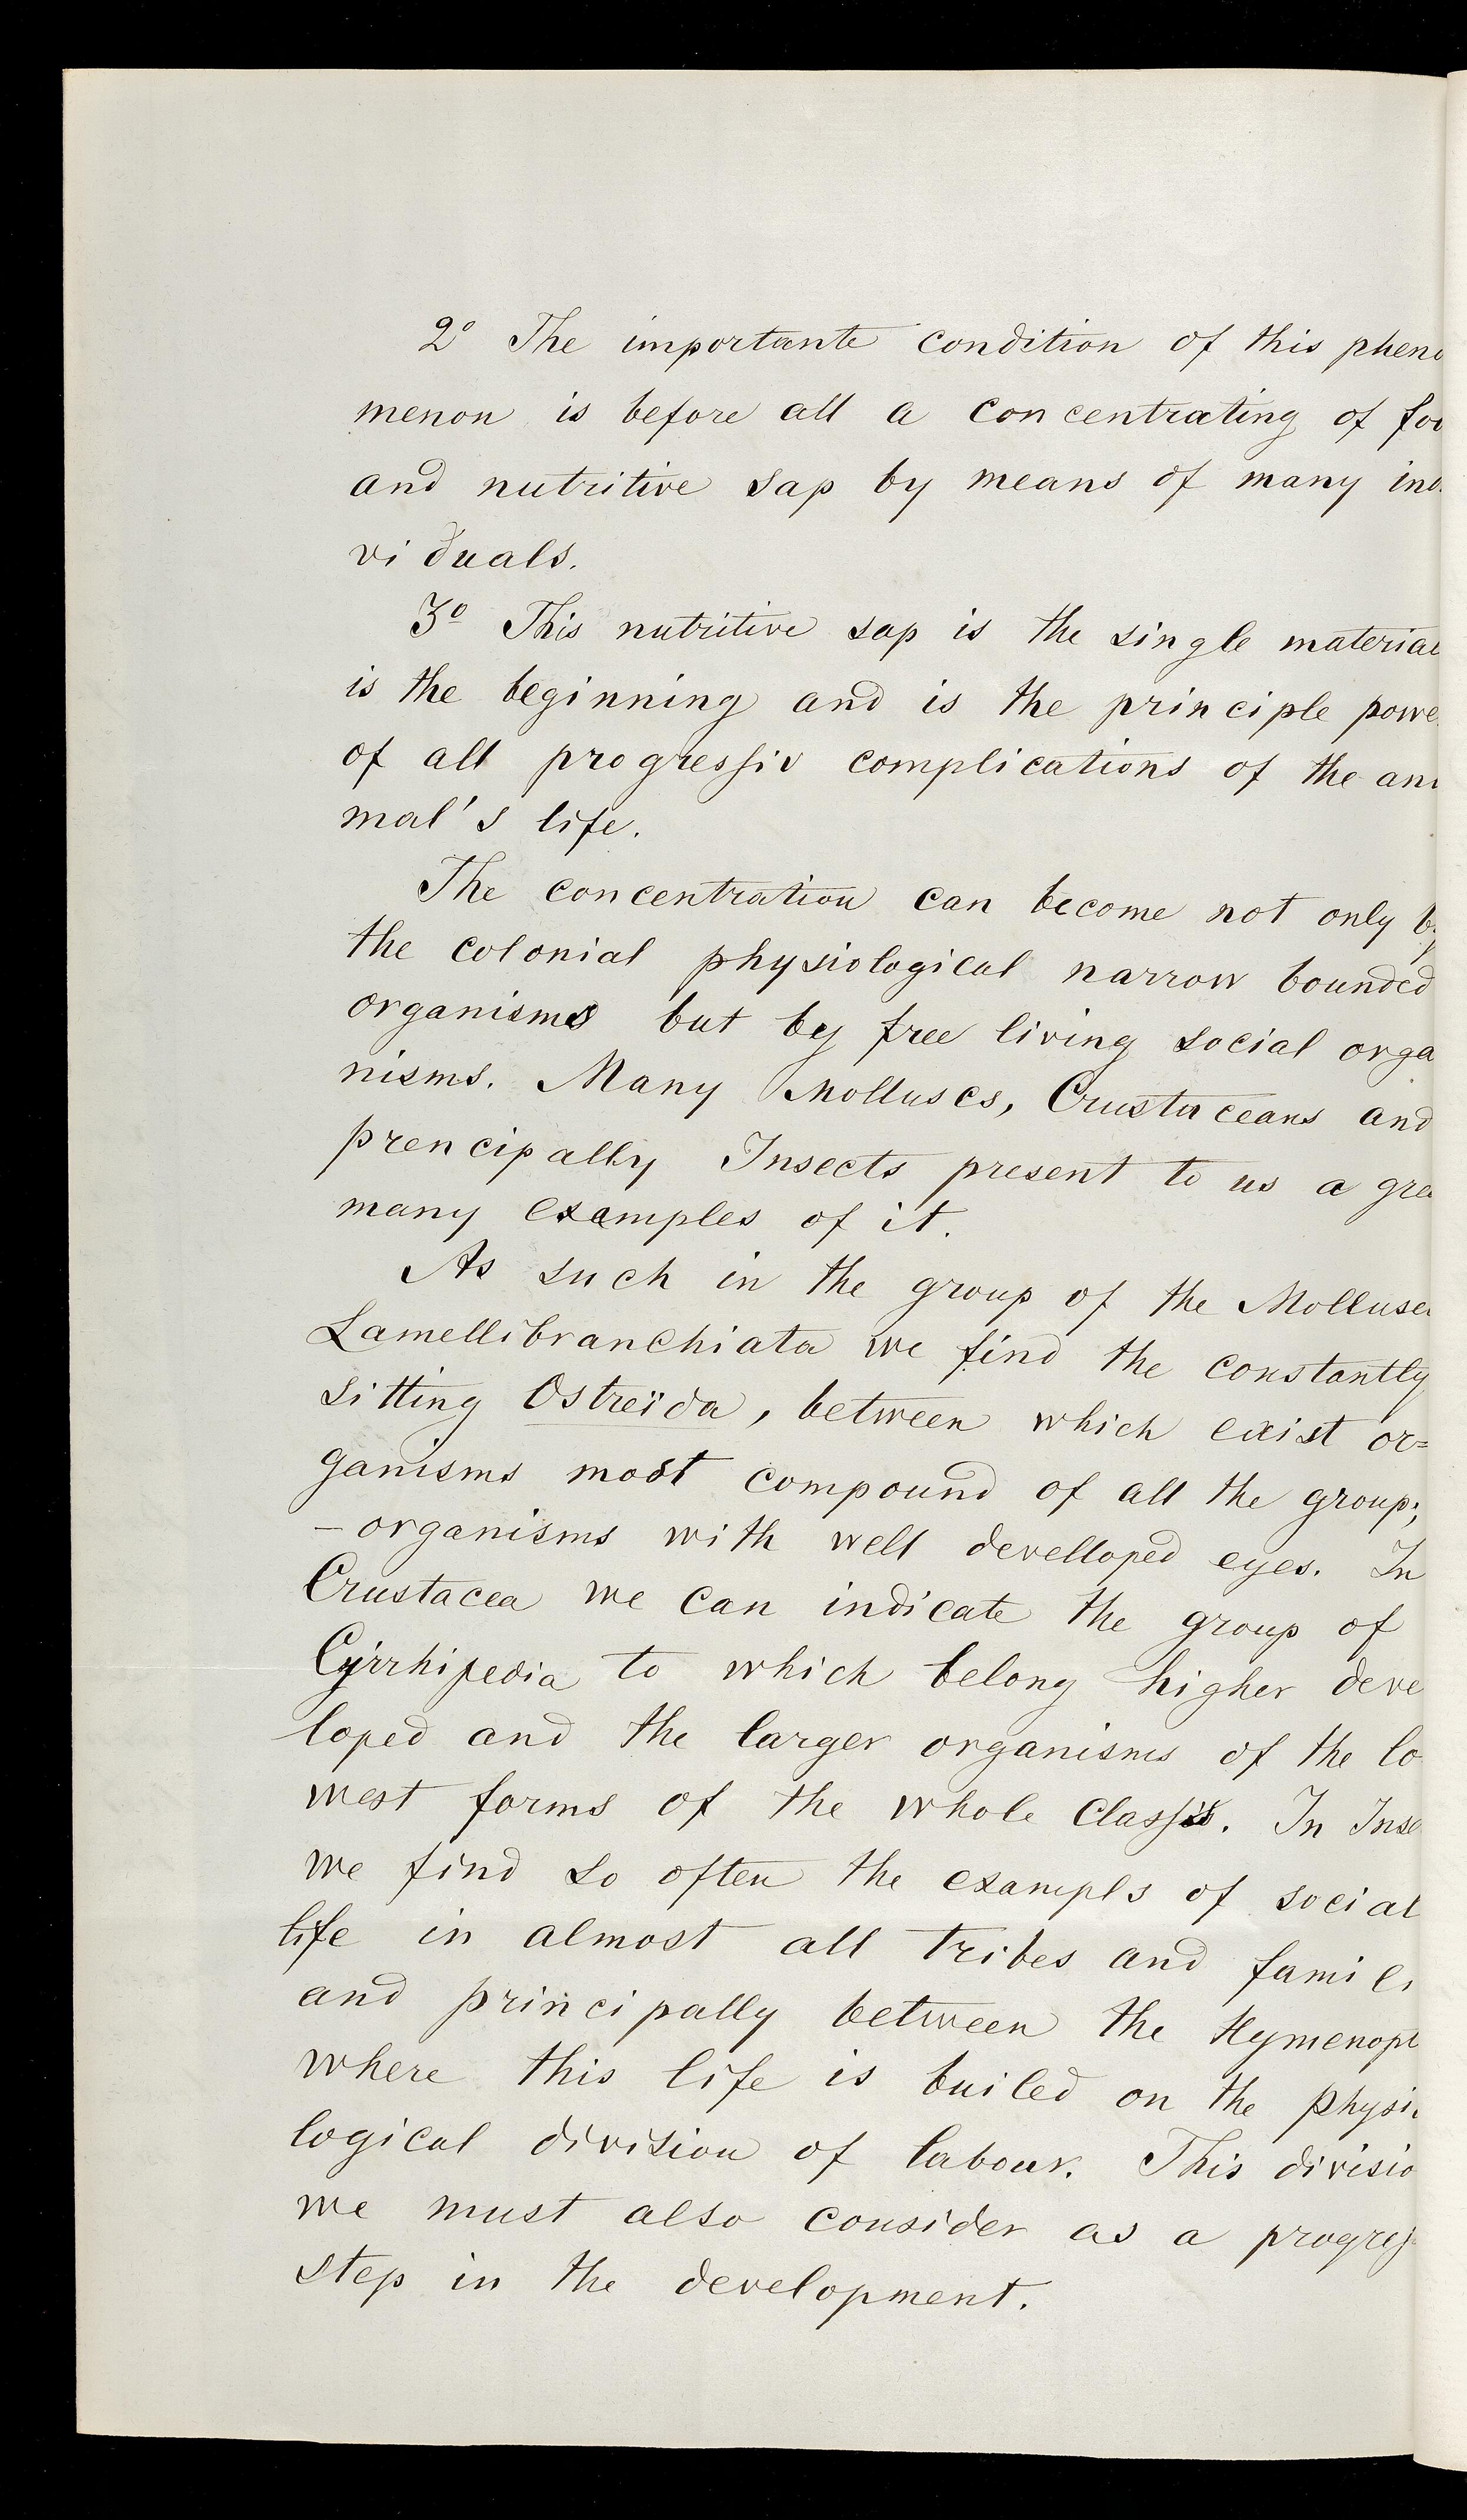 2º The importante condition of this pheno
menon is before all a concentrating of foo
and nutritive sap by means of many ind
viduals.
3º This nutritive sap is the single material
is the beginning and is the principle power
of all progressiv complications of the ani
mal's life.
The concentration can become not only by
the colonial physiological narrow bounded
organisms but by free living social orga
nisms. Many Molluscs, Crustaceans and
prencipally Insects present to us a grea
many examples of it.
As such in the group of the Mollusca
Lamellibranchiata we find the constantly
sitting Ostreïda, between which exist or=
ganisms most compound of all the group;
– organisms with well develloped eyes. In
Crustacea we can indicate the group of
Cyrrhipedia to which belong higher deve
loped and the larger organisms of the lo
west forms of the whole Classis. In Inse
we find so often the exampls of social
life in almost all tribes and famili
and principally between the Hymenopt
where this life is builed on the physio
logical division of labour. This divisio
we must also consider as a progres
step in the development.